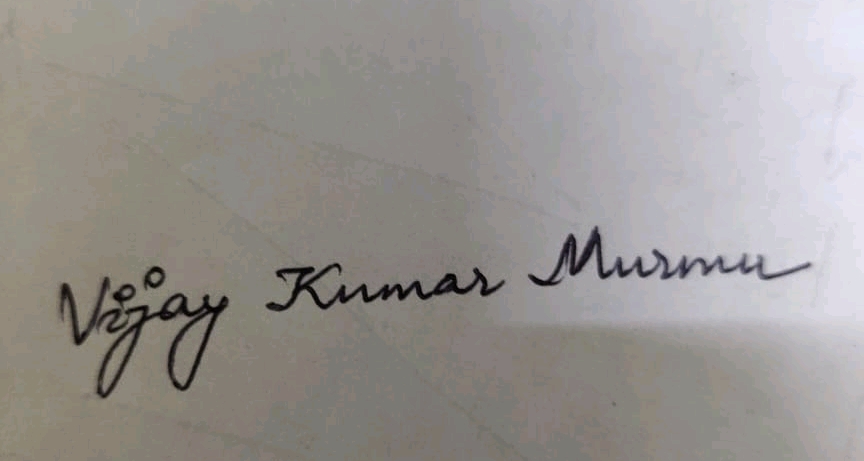 Vijay Kumar Murmu